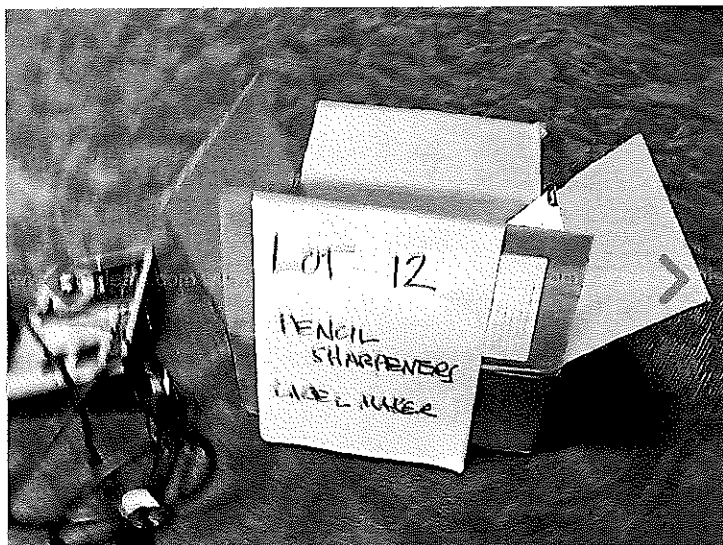 LOT 12
PENCIL
SHARPENERS
LABEL MAKER